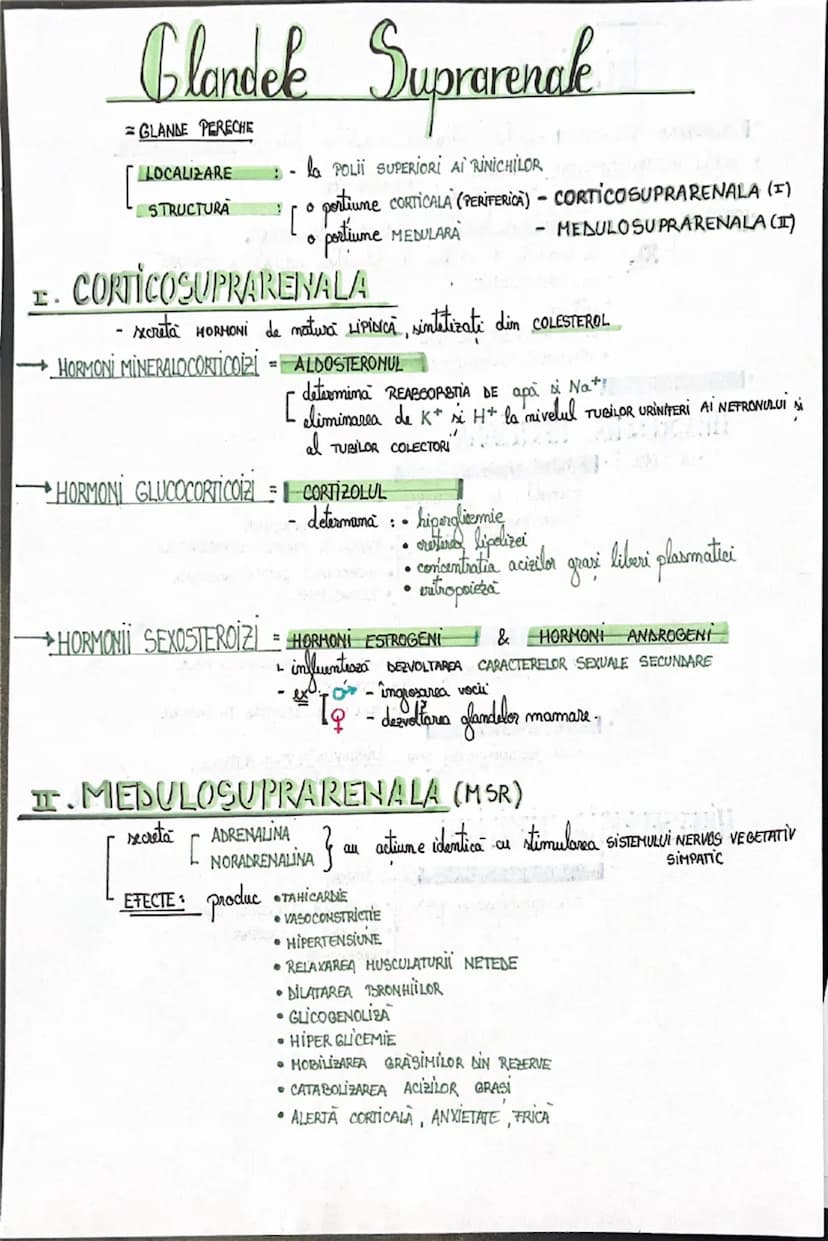 Glandele Suprarenale
= GLANDE PERECHE
LOCALIZARE : - la POLII SUPERIORI AI RINICHILOR
STRUCTURĂ : o porțiune CORTICALĂ (PERIFERICĂ) - CORTICOSUPRARENALA (I)
o porțiune MEDULARĂ - MEDULOSUPRARENALA (II)
I. CORTICOSUPRARENALA
- secretă HORMONI de natură LIPIDICĂ, sintetizați din COLESTEROL
→ HORMONI MINERALOCORTICOIZI = ALDOSTERONUL
determină REABSORBȚIA DE apă și Na+,
eliminarea de K+ și H+ la nivelul TUBILOR URINIFERI AI NEFRONULUI și
al TUBILOR COLECTORI
→ HORMONI GLUCOCORTICOIZI = CORTIZOLUL
- determină : • hiperglicemie
• creșterea lipolizei
• concentrația acizilor grași liberi plasmatici
• eritropoieză
→ HORMONII SEXOSTEROIZI = HORMONI ESTROGENI & HORMONI ANDROGENI
influențează DEZVOLTAREA CARACTERELOR SEXUALE SECUNDARE
- ex: ♂ - îngroșarea vocii
♀ - dezvoltarea glandelor mamare.
II. MEDULOSUPRARENALA (MSR)
secretă ADRENALINA
NORADRENALINA } au acțiune identică cu stimularea SISTEMULUI NERVOS VEGETATIV
SIMPATIC
EFECTE: produc • TAHICARDIE
• VASOCONSTRICȚIE
• HIPERTENSIUNE
• RELAXAREA MUSCULATURII NETEDE
• DILATAREA BRONHIILOR
• GLICOGENOLIZĂ
• HIPERGLICEMIE
• MOBILIZAREA GRĂSIMILOR DIN REZERVE
• CATABOLIZAREA ACIZILOR GRAȘI
• ALERTĂ CORTICALĂ, ANXIETATE, FRICĂ